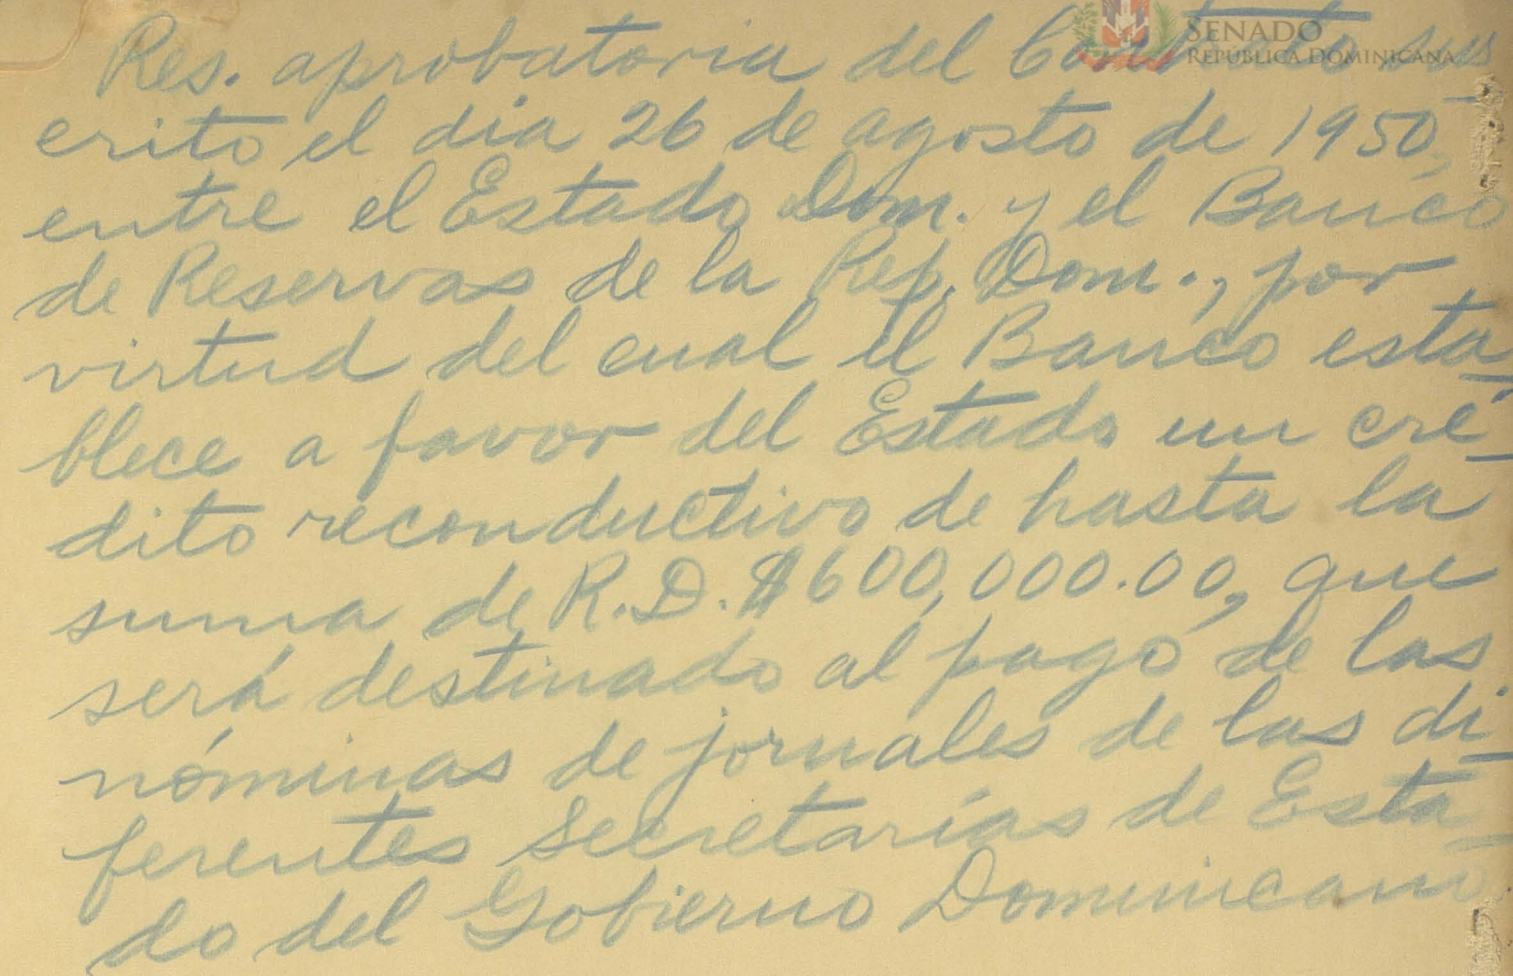 SENADO
REPÚBLICA DOMINICANA
Res. aprobatoria del Contrato sus
crito el dia 26 de agosto de 1950,
entre el Estado Dom. y el Banco
de Reservas de la Rep. Dom., por
virtud del cual el Banco esta-
blece a favor del Estado un cré-
dito reconductivo de hasta la
suma de R.D.$600,000.00, que
será destinado al pago de las
nóminas de jornales de las di-
ferentes Secretarías de Esta-
do del Gobierno Dominicano